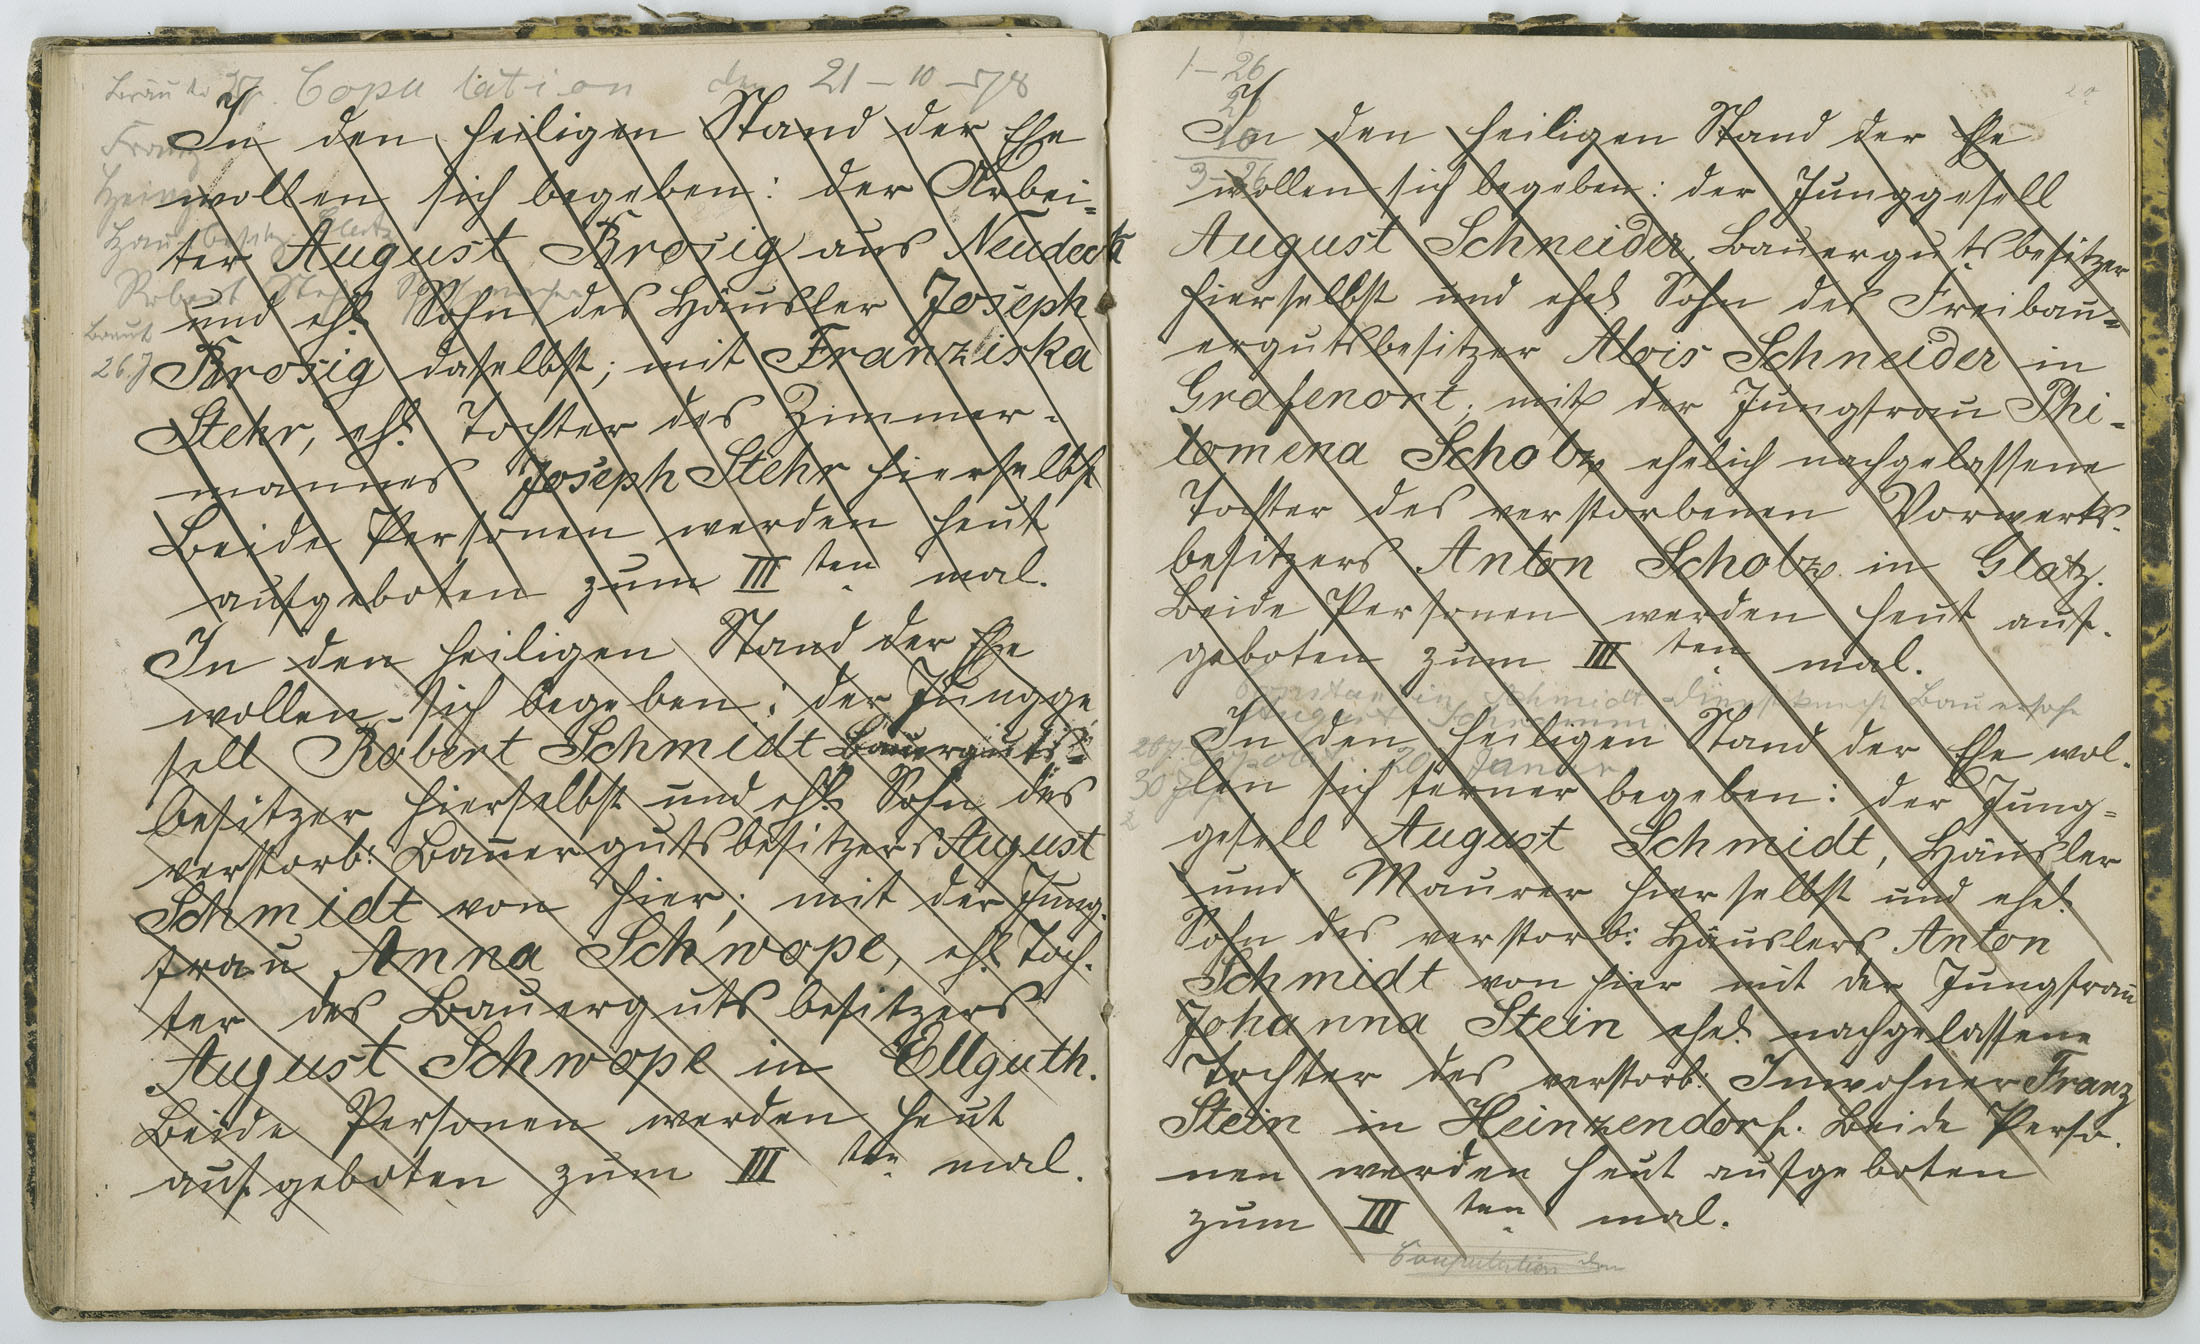 Copulation den 21-10-78
In den heiligen Stand der Ehe
Franz
wollen sich begeben: der Arbei-
ter August Brosig aus Neudeck
Robert
und ehl. Sohn des Häusler Joseph
Braut
26 J
Brosig daselbst; mit Franziska
Stehr, ehl. Tochter des Zimmer-
mannes Joseph Stehr hierselbst
Beide Personen werden heut
aufgeboten zum III ten mal.
In den heiligen Stand der Ehe
wollen sich begeben: der Jungge
sell Robert Schmidt Bauerguts-
besitzer hierselbst und ehl. Sohn des
verstorb: Bauergutsbesitzers August
Schmidt von hier; mit der Jung-
frau Anna Schwope, ehl. Toch-
ter des Bauergutsbesitzers
August Schwope in Ellguth.
Beide Personen werden heut
aufgeboten zum III ten mal.
1-26
In den heiligen Stand der Ehe
wollen sich begeben: der Junggesell
August Schneider, Bauergutsbesitzer
hierselbst und ehel. Sohn des Freibau-
ergutsbesitzer Alois Schneider in
Grafenort; mit der Jungfrau Phi-
lomena Scholz ehelich nachgelassene
Tochter des verstorbenen Vorwerks-
besitzers Anton Scholz in Glatz.
Beide Personen werden heut auf-
geboten zum III ten mal.
Constantin Schmidt Bauersohn
August Schramm
In den heiligen Stand der Ehe wol-
20 Januar
30 J
len sich ferner begeben: der Jung-
gesell August Schmidt, Häusler
und Maurer hierselbst und ehel.
Sohn des verstorb: Häuslers Anton
Schmidt von hier mit der Jungfrau
Johanna Stein ehel. nachgelassene
Tochter des verstorb: Inwohner Franz
Stein in Heinzendorf. Beide Perso-
nen werden heut aufgeboten
zum III ten mal.
Copulation den